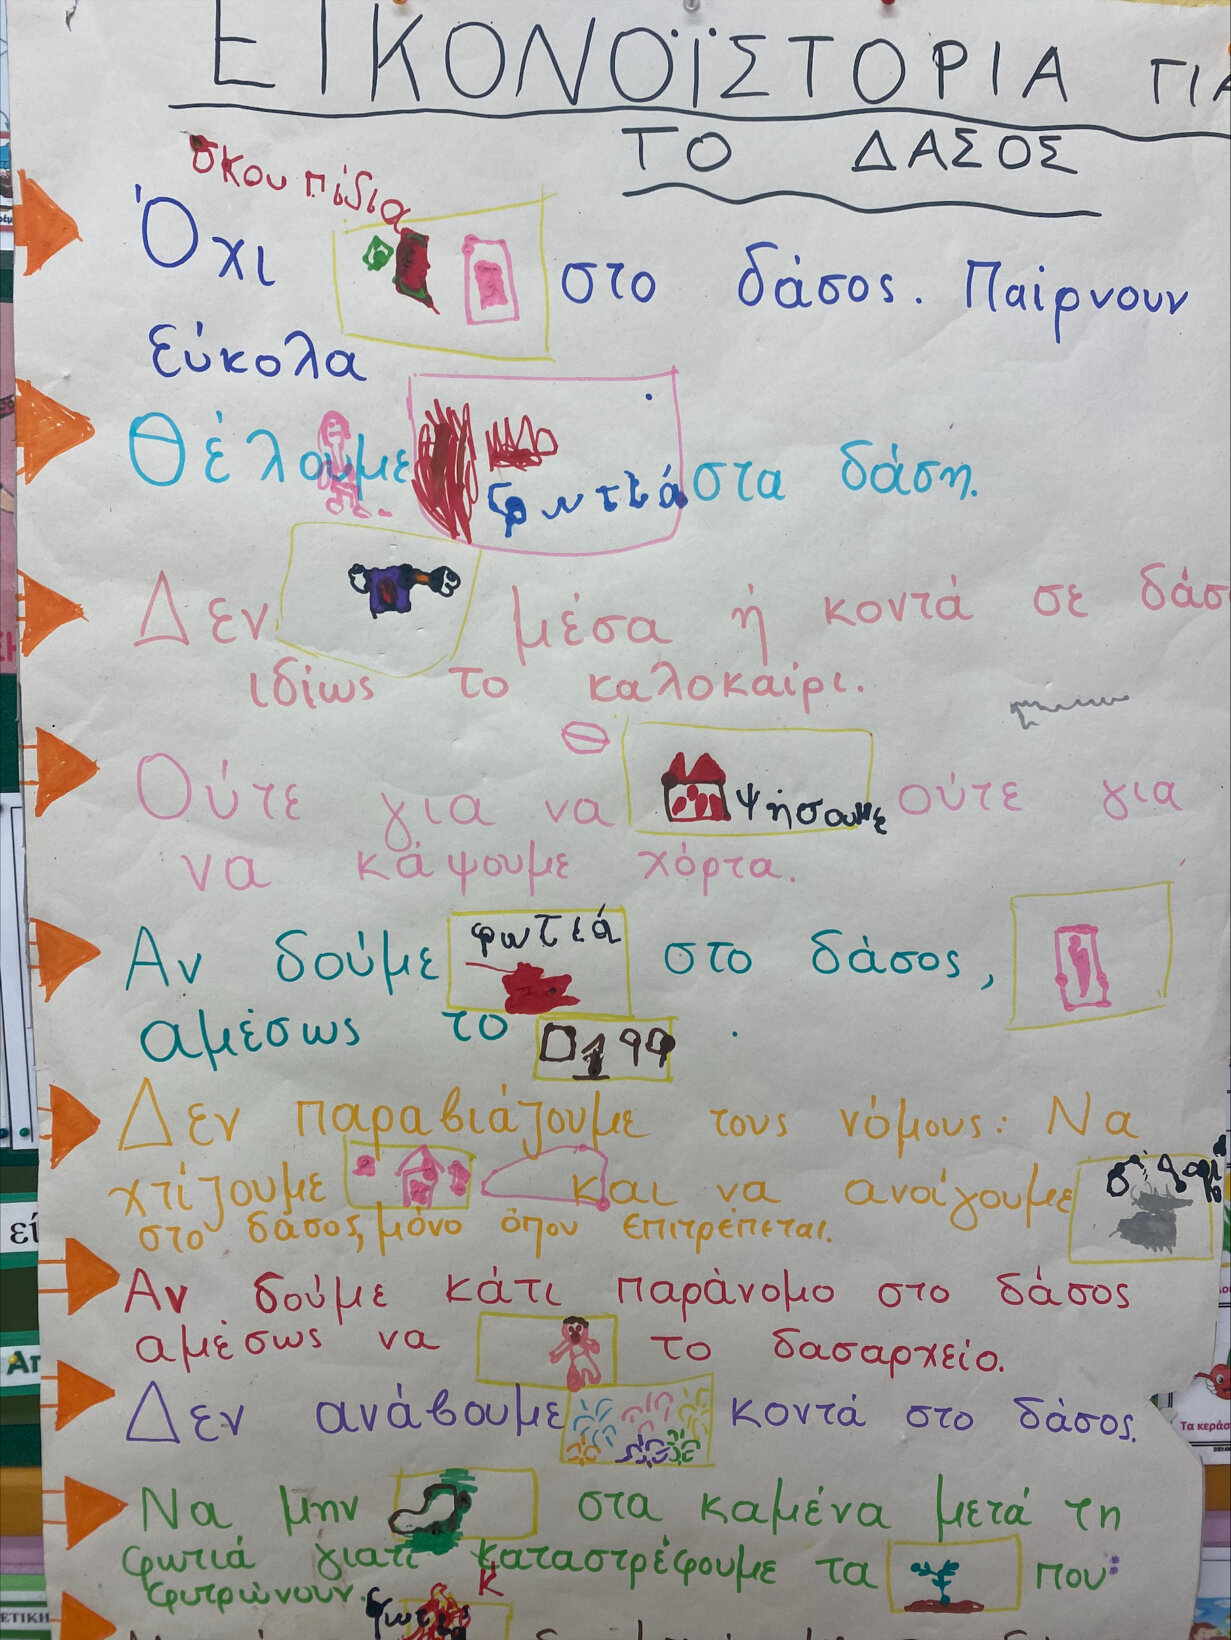 ΕΙΚΟΝΟΪΣΤΟΡΙΑ ΓΙΑ
ΤΟ ΔΑΣΟΣ
σκουπίδια
Όχι στο δάσος. Παίρνουν
εύκολα
Θέλουμε φωτιά στα δάση.
Δεν μέσα ή κοντά σε δάσ
ιδίως το καλοκαίρι.
Ούτε για να ψήσουμε ούτε για
να κάψουμε χόρτα.
Αν δούμε φωτιά στο δάσος,
αμέσως το 199.
Δεν παραβιάζουμε τους νόμους: Να
χτίζουμε και να ανοίγουμε
στο δάσος, μόνο όπου επιτρέπεται.
Αν δούμε κάτι παράνομο στο δάσος
αμέσως να το δασαρχείο.
Δεν ανάβουμε κοντά στο δάσος.
Να μην στα καμένα μετά τη
φωτιά γιατί καταστρέφουμε τα που
φυτρώνουν.
Κ
φωτιές
εί
Απ
Τα κεράσ
ΕΤΙΚΗ